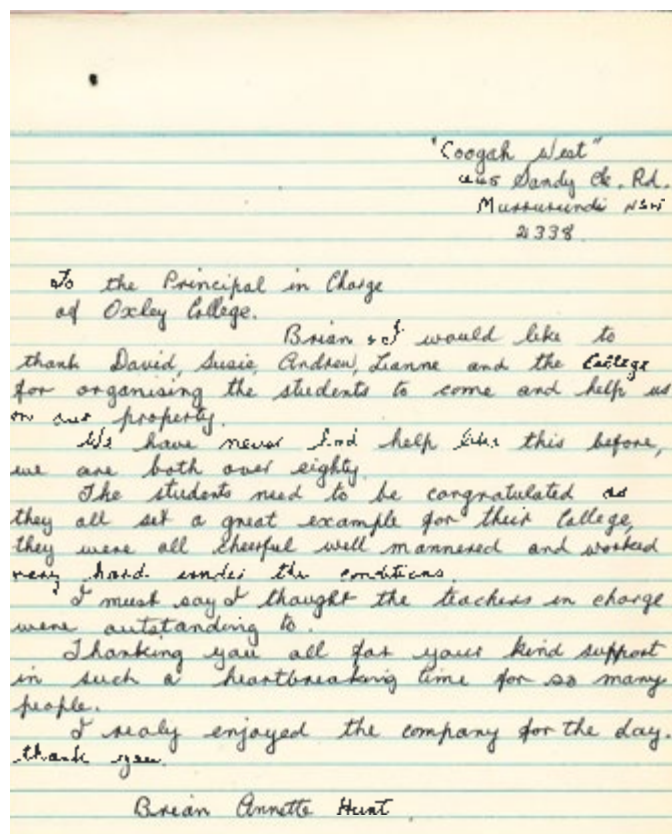 "Coogah West"
Sandy Ck. Rd.
Murrurundi NSW
2338
To the Principal in Charge
of Oxley College.
Brian & I would like to
thank David, Susie, Andrew, Lianne and the College
for organising the students to come and help us
on our property.
We have never had help like this before,
we are both over eighty.
The students need to be congratulated as
they all set a great example for their College,
they were all cheerful well mannered and worked
very hard under the conditions.
I must say I thought the teachers in charge
were outstanding to.
Thanking you all for your kind support
in such a heartbreaking time for so many
people.
I realy enjoyed the company for the day.
thank you.
Brian Annette Hunt